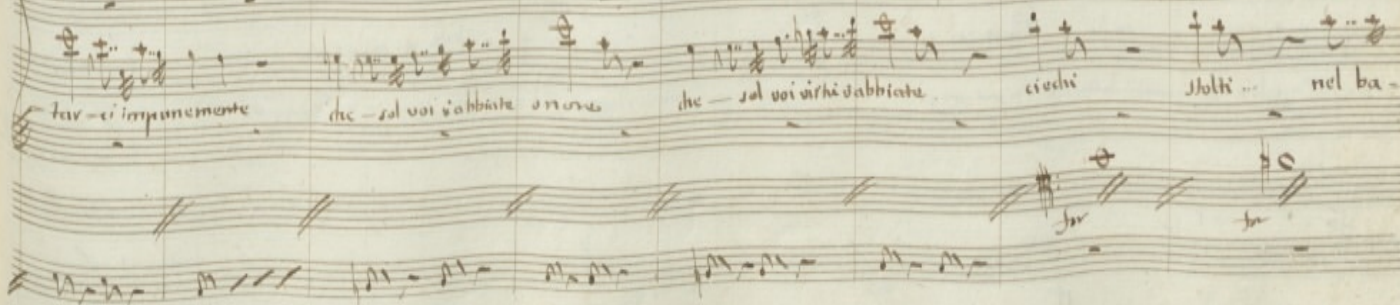 tar-ci impunemente che-sol voi v'abbiate onore che-sol voi virtù v'abbiate ciechi stolti... nel ba-
for for